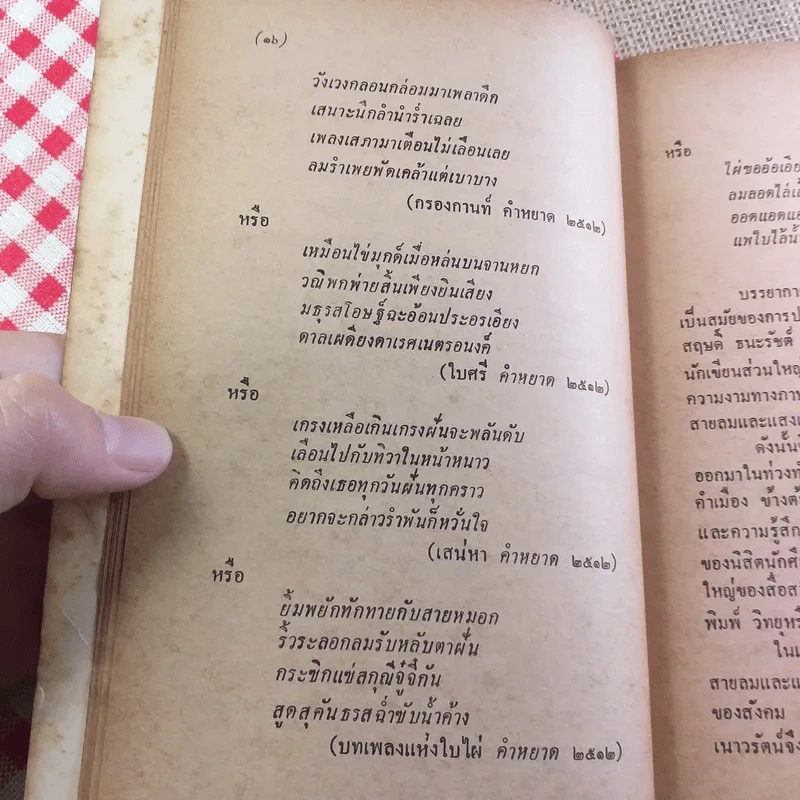 (๑๖)
วังเวงกลอนกล่อมมาเพลาดึก
เสนาะนึกลำนำร่ำเฉลย
เพลงเสภามาเตือนไม่เลือนเลย
ลมรำเพยพัดเคล้าแต่เบาบาง
(กรองกานท์ คำหยาด ๒๕๑๒)
หรือ
เหมือนไข่มุกด์เมื่อหล่นบนจานหยก
วณิพกพ่ายสิ้นเพียงยินเสียง
มธุรสโอษฐ์ฉะอ้อนประอรเอียง
ดาลเผดียงดาเรศเนตรอนงค์
(ใบศรี คำหยาด ๒๕๑๒)
หรือ
เกรงเหลือเกินเกรงฝันจะพลันดับ
เลือนไปกับทิวาในหน้าหนาว
คิดถึงเธอทุกวันฝันทุกคราว
อยากจะกล่าวรำพันก็หวั่นใจ
(เสน่หา คำหยาด ๒๕๑๒)
หรือ
ยิ้มพยักทักทายกับสายหมอก
ริ้วระลอกลมรับหลับตาฝัน
กระซิกแซ่สกุณีจู๋จี๋กัน
สูดสุคันธรสฉ่ำซับน้ำค้าง
(บทเพลงแห่งใบไผ่ คำหยาด ๒๕๑๒)
หรือ
ไผ่ซออ้อเอีย
ลมลอดไล่เลี้
ออดแอดแอ
แพใบไล้น้ำ
บรรยากา
เป็นสมัยของการป
สฤษดิ์ ธนะรัชต์
นักเขียนส่วนใหญ่
ความงามทางภา
สายลมและแสงแ
ดังนั้น
ออกมาในท่วงท
คำเมือง ข้างต้
และความรู้สึก
ของนิสิตนักศึ
ใหญ่ของสื่อส
พิมพ์ วิทยุหรื
ในเ
สายลมและแ
ของสังคม
เนาวรัตน์จึง